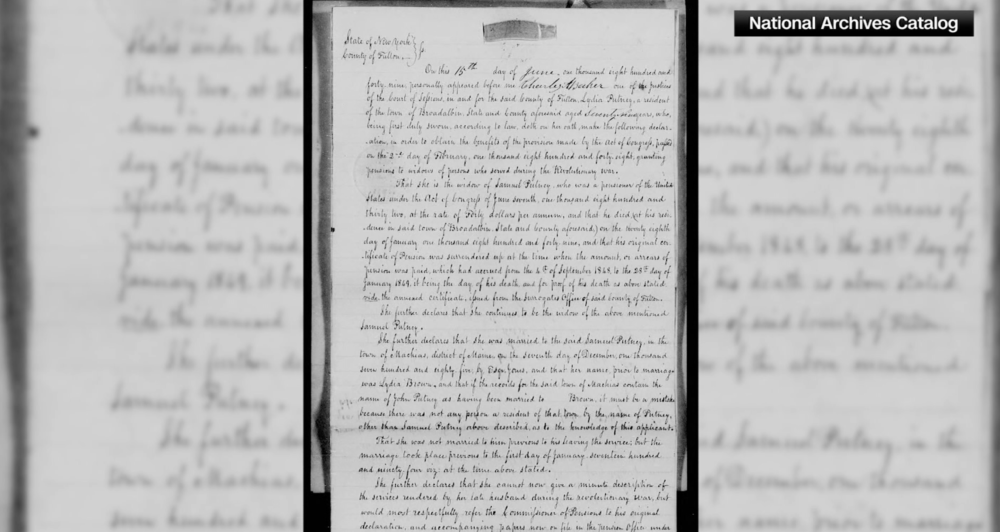 National Archives Catalog
State of New York }
County of Fulton. } ss
On this 15th day of June, one thousand eight hundred and
forty nine personally appeared before me one of the justices
of the Court of Sessions, in and for the said County of Fulton, Lydia Putney, a resident
of the town of Broadalbin, State and County aforesaid aged years, who,
being first duly sworn, according to law, doth on her oath, make the following declar-
ation, in order to obtain the benefits of the provision made by the Act of Congress, passed
on the 2nd day of February, one thousand eight hundred and forty eight, granting
pensions to widows of persons who served during the Revolutionary war.
That she is the widow of Samuel Putney, who was a pensioner of the United
States under the Act of Congress of June seventh, one thousand eight hundred and
thirty two, at the rate of Forty dollars per annum, and that he died, (at his resi-
dence in said town of Broadalbin, State and County aforesaid,) on the twenty eighth
day of January one thousand eight hundred and forty nine, and that his original cer-
tificate of Pension was surrendered up at the time when the amount, or arrears of
pension was paid, which had accrued from the 4th of September 1848, to the 28th day of
January 1849, it being the day of his death, and for proof of his death as above stated
vide the annexed certificate, issued from the Surrogates Office of said County of Fulton.
She further declares that she continues to be the widow of the above mentioned
Samuel Putney.
She further declares that she was married to the said Samuel Putney, in the
town of Machias, district of Maine, on the seventh day of December, one thousand
seven hundred and eighty five, by Esqr Jones, and that her name, prior to marriage
was Lydia Brown, and that if the records for the said town of Machias contain the
name of John Putney as having been married to Brown, it must be a mistake
because there was not any person a resident of that town by the name of Putney,
other than Samuel Putney above described, as to the knowledge of this applicant.
That she was not married to him previous to his leaving the service; but the
marriage took place previous to the first day of January, seventeen hundred
and ninety four viz; at the time above stated.
She further declares that she cannot now give a minute description of
the services rendered by her late husband during the revolutionary war, but
would most respectfully refer the Commissioner of Pensions to his original
declaration, and accompanying papers now on file in the pension Office under